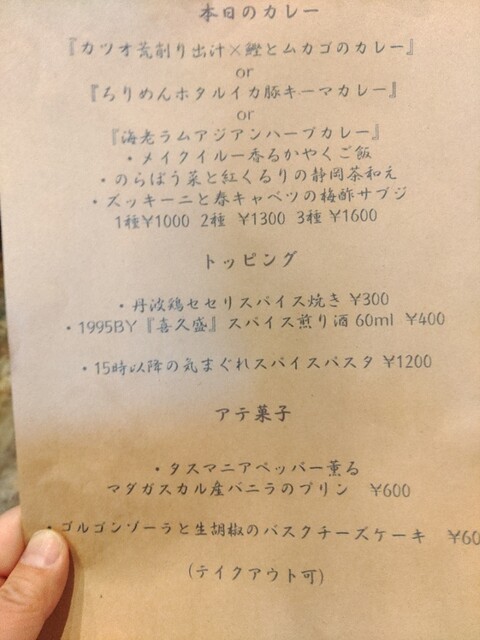 本日のカレー
『カツオ荒削り出汁×鰹とムカゴのカレー』
or
『ちりめんホタルイカ豚キーマカレー』
or
『海老ラムアジアンハーブカレー』
・メイクイルー香るかやくご飯
・のらぼう菜と紅くるりの静岡茶和え
・ズッキーニと春キャベツの梅酢サブジ
1種¥1000 2種 ¥1300 3種 ¥1600
トッピング
・丹波鶏セセリスパイス焼き ¥300
・1995BY『喜久盛』スパイス煎り酒 60ml ¥400
・15時以降の気まぐれスパイスパスタ ¥1200
アテ菓子
・タスマニアペッパー薫る
マダガスカル産バニラのプリン ¥600
・ゴルゴンゾーラと生胡椒のバスクチーズケーキ ¥60
(テイクアウト可)